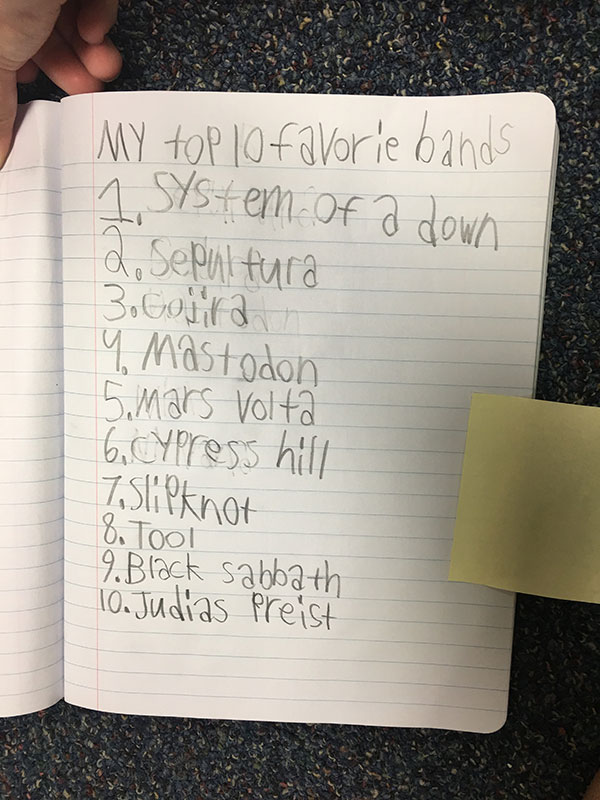 MY top 10 favorie bands
1. System of a down
2. Sepurtura
3. Gojira
4. Mastodon
5. Mars volta
6. Cypress hill
7. Slipknot
8. Tool
9. Black sabbath
10. Judias Preist